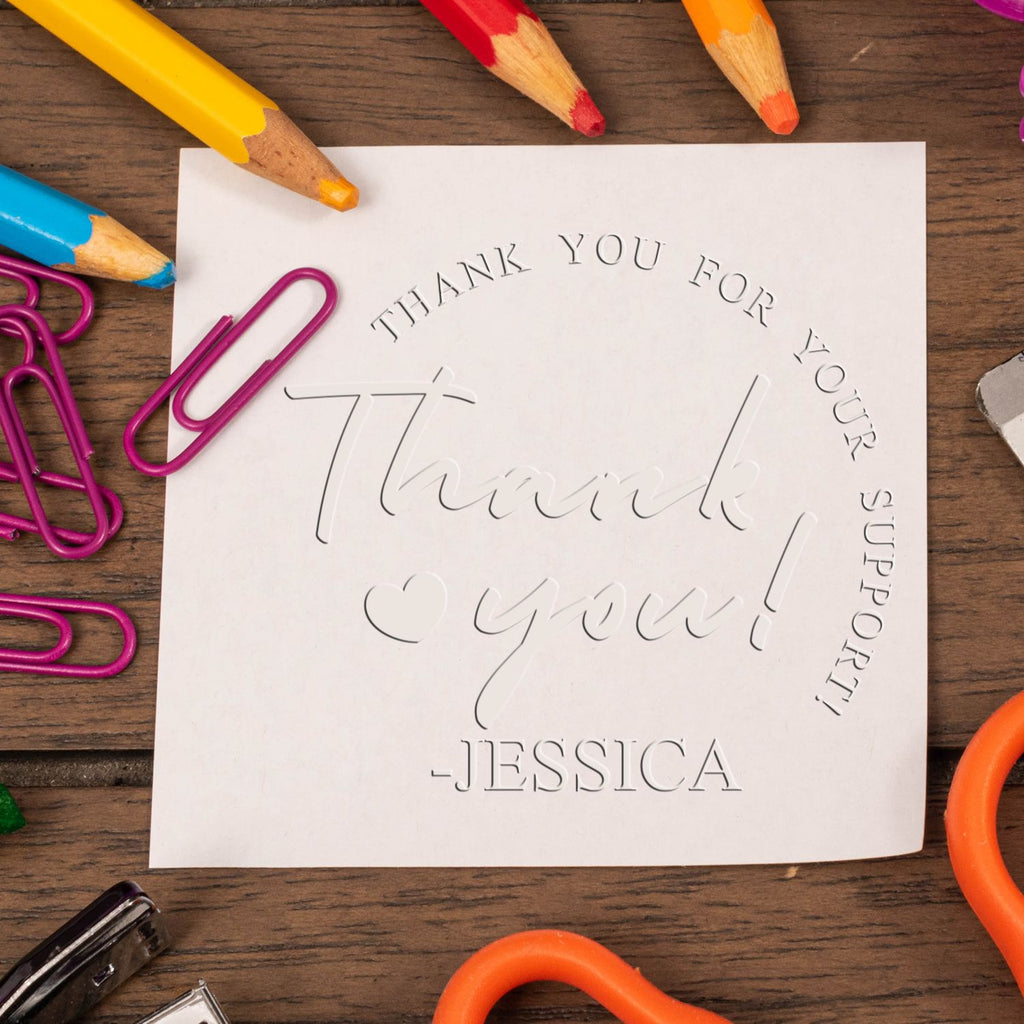 THANK YOU FOR YOUR SUPPORT!
Thank
you!
-JESSICA